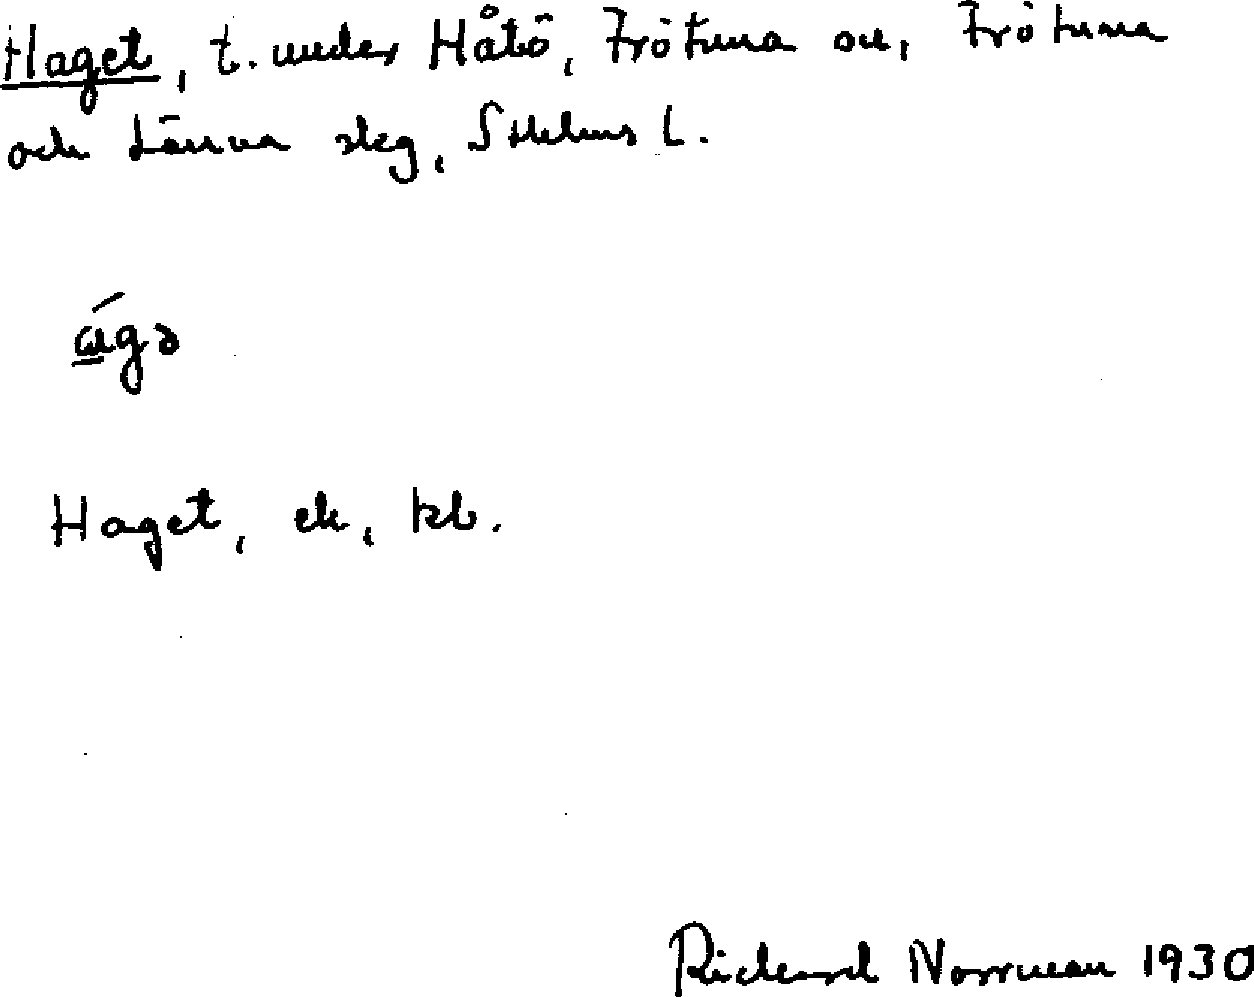 Haget, t. under Håtö, Frötuna sn, Frötuna
och Länna skg, Sthlms l.
ágə
Haget, ek, kb.
Rickard Norrman 1930